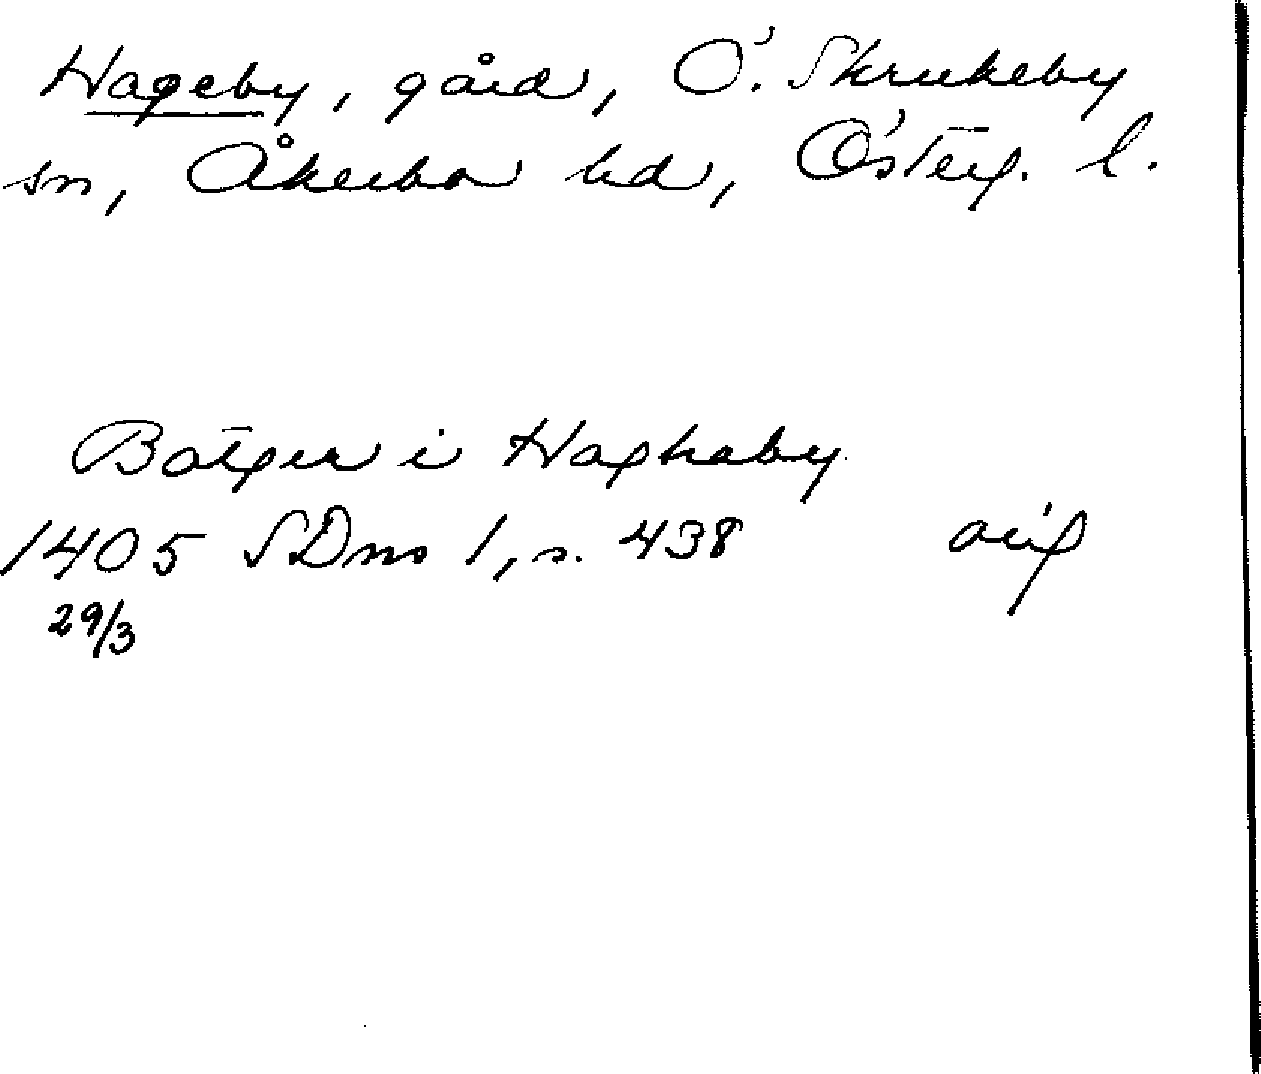 Hageby, gård, Ö. Skrukeby
sn, Åkerbo hd, Österg. l.
Botger i Haghaby
1405 SDns 1, s. 438 orig
29/3